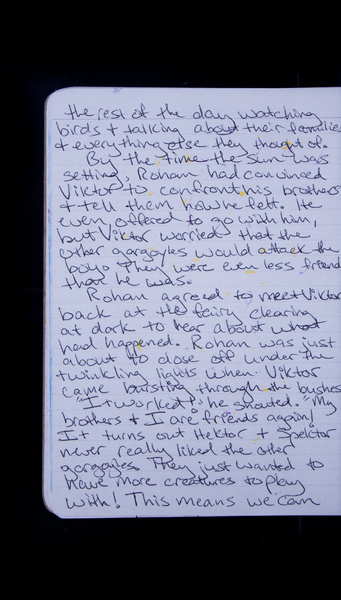 the rest of the day watching
birds + talking about their families
+ everything else they thought of.
By the time the sun was
setting, Rohan had convinced
Viktor to confront his brothers
+ tell them how he felt. He
even offered to go with him,
but Viktor worried that the
other gargoyles would attack the
boy. They were even less friend
than he was.
Rohan agreed to meet Viktor
back at the fairy clearing
at dark to hear about what
had happened. Rohan was just
about to close off under the
twinkling lights when Viktor
came bursting through the bushes
"It worked!" he shouted. "My
brothers + I are friends again!
It turns out Hektor + Spektor
never really liked the other
gargoyles. They just wanted to
have more creatures to play
with! This means we can